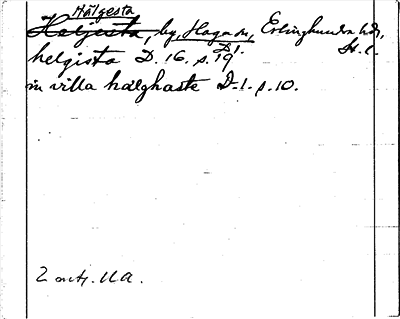 Hälgesta
Haljesta, by, Haga sn, Erlinghundra hd, St. l.
helgista D. 16. s. 19 D1.
in villa hælghaste D1. s. 10.
2 ort. UA.